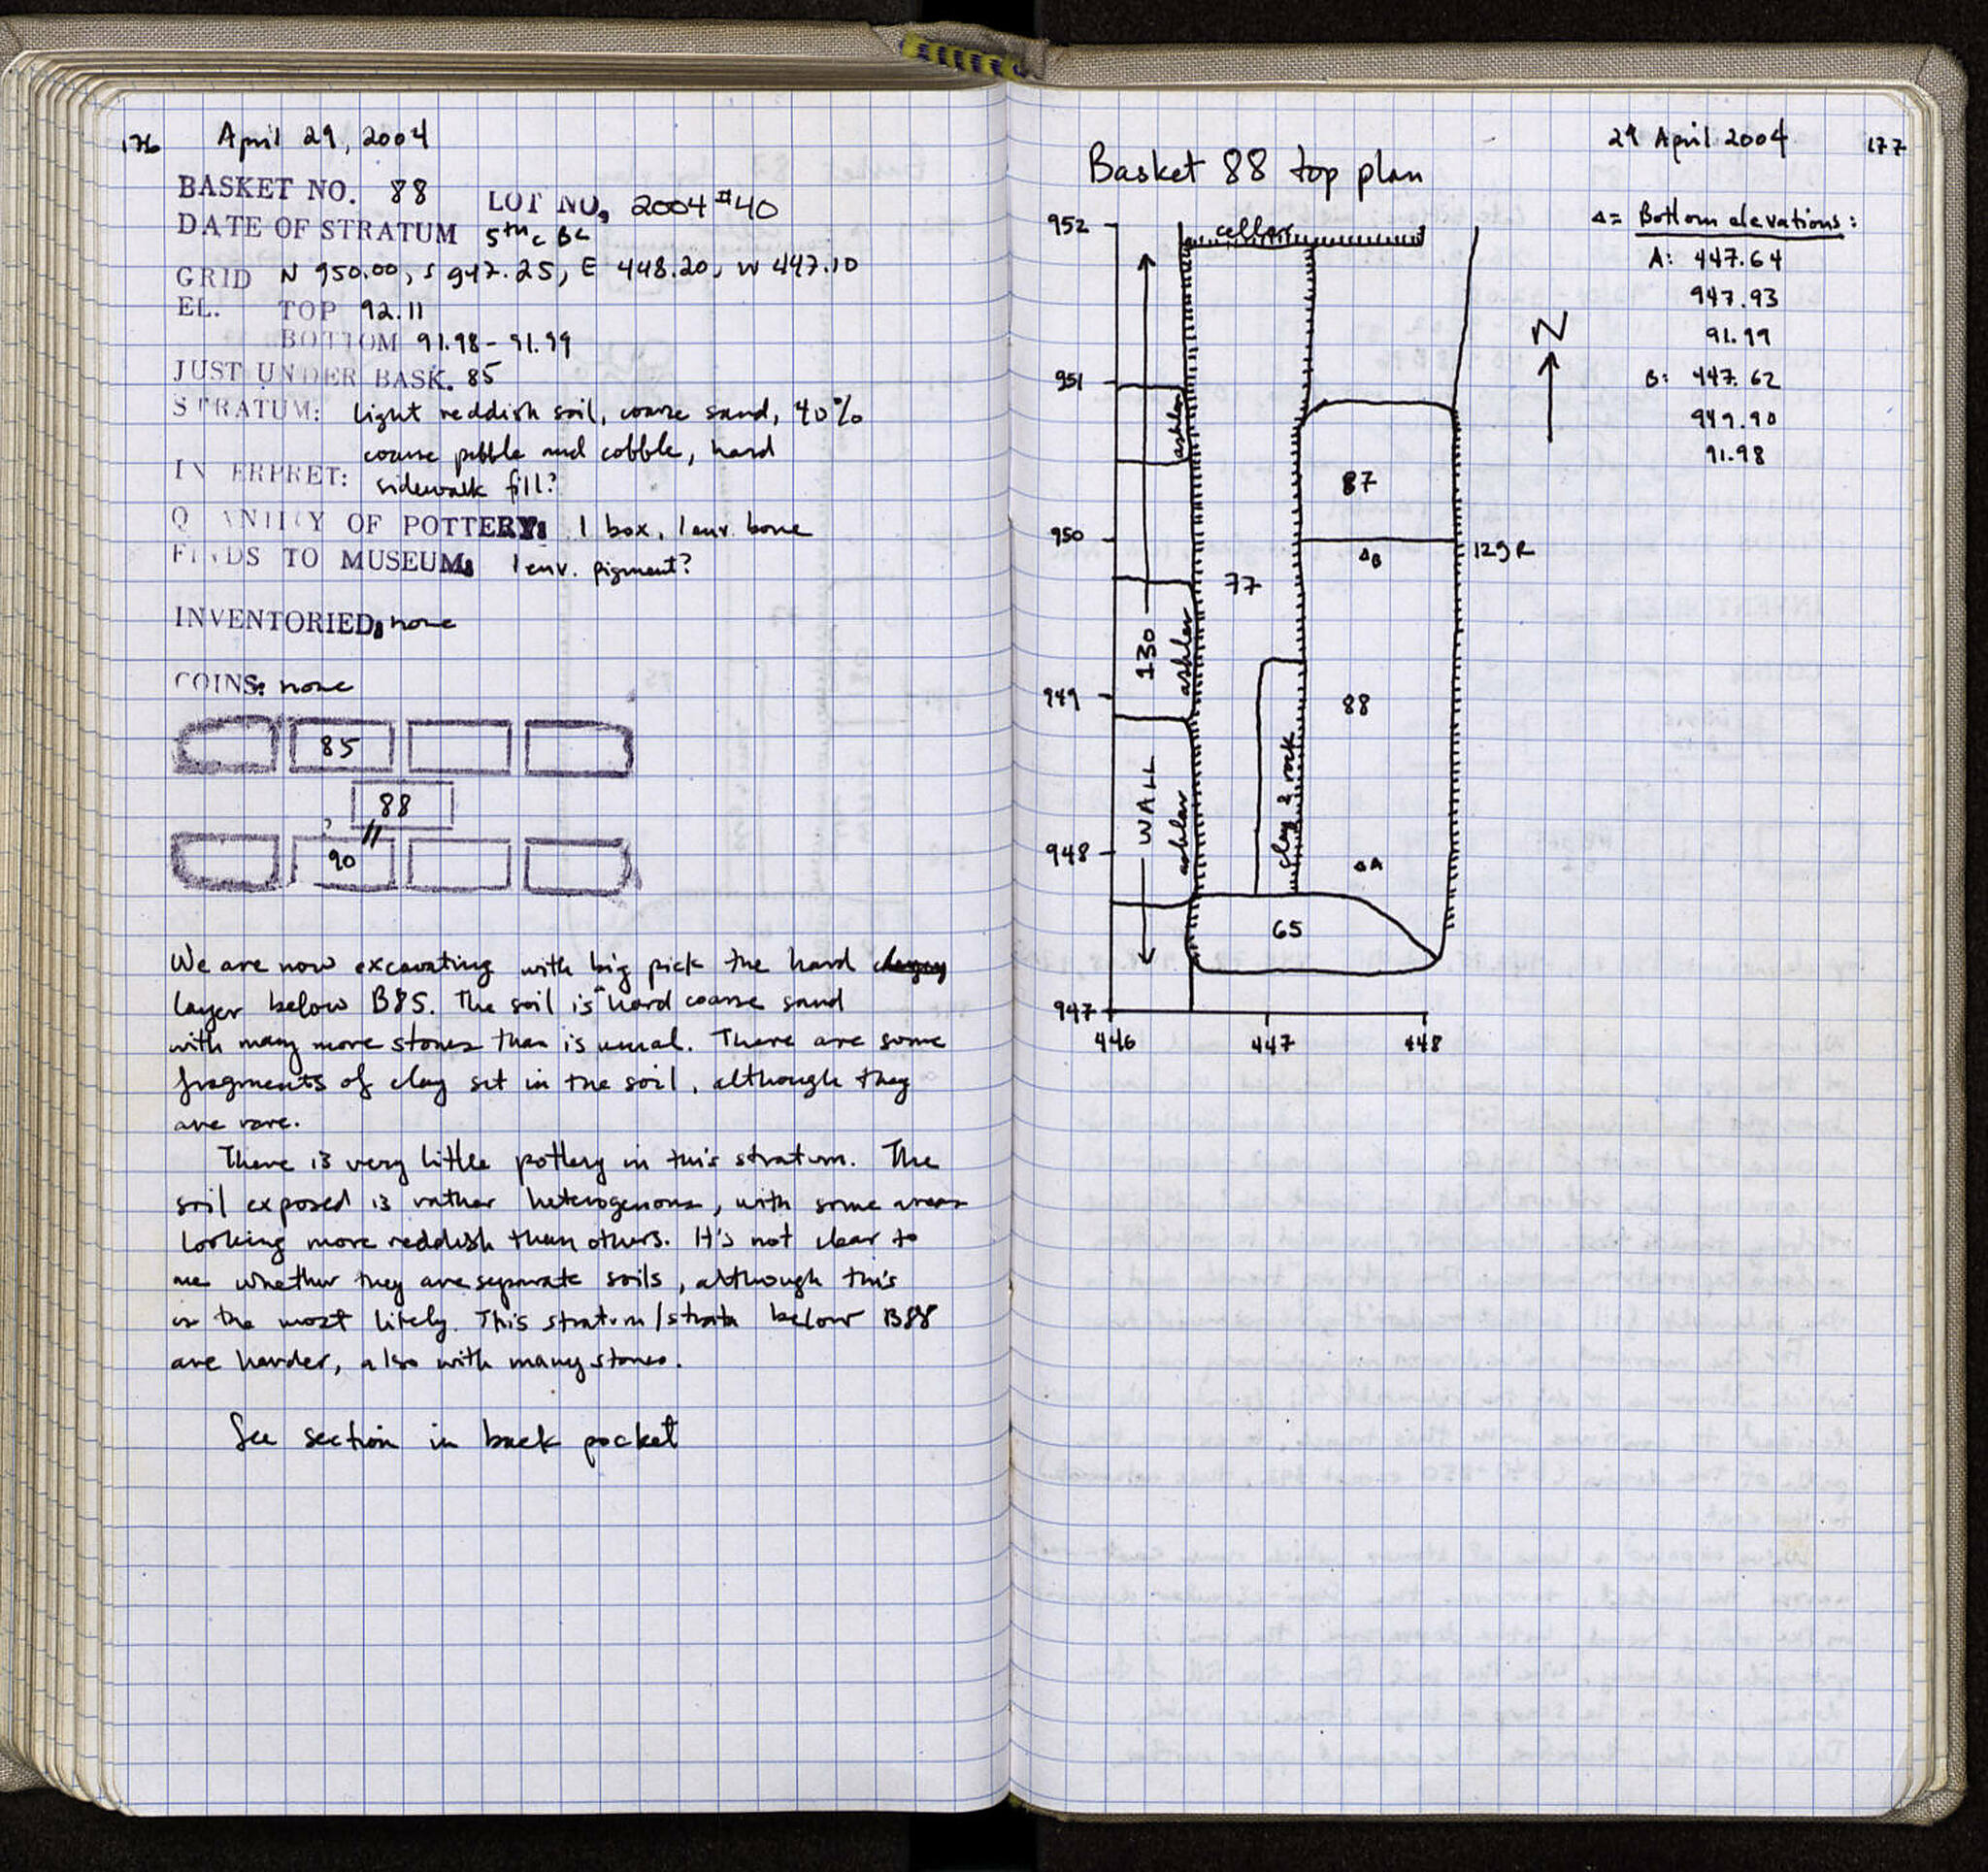 176 April 29, 2004
BASKET NO. 88 LOT NO, 2004 #40
DATE OF STRATUM 5th c BC
GRID N 950.00, S 947.25, E 448.20, W 447.10
EL. TOP 92.11
BOTTOM 91.98 - 91.99
JUST UNDER BASK. 85
STRATUM: light reddish soil, coarse sand, 40%
coarse pebble and cobble, hard
IN ERPRET: sidewalk fill?
QUANTITY OF POTTERY: 1 box, 1 env. bone
FINDS TO MUSEUM: 1 env. pigment?
INVENTORIED: none
COINS: none
85
88
? //
90
We are now excavating with big pick the hard
layer below B85. The soil is hard coarse sand
with many more stones than is usual. There are some
fragments of clay set in the soil, although they
are rare.
There is very little pottery in this stratum. The
soil exposed is rather heterogenous, with some areas
looking more reddish than others. It's not clear to
me whether they are separate soils, although this
is the most likely. This stratum/strata below B88
are harder, also with many stones.
See section in back pocket
29 April 2004 177
Basket 88 top plan
Δ= Bottom elevations:
A: 447.64
947.93
91.99
B: 447.62
949.90
91.98
952
cellar
N
951
ashlar
87
950
ΔB
129 R
77
130
ashlar
949
88
clay & rock
WALL
ashlar
948
ΔA
65
947
446 447 448